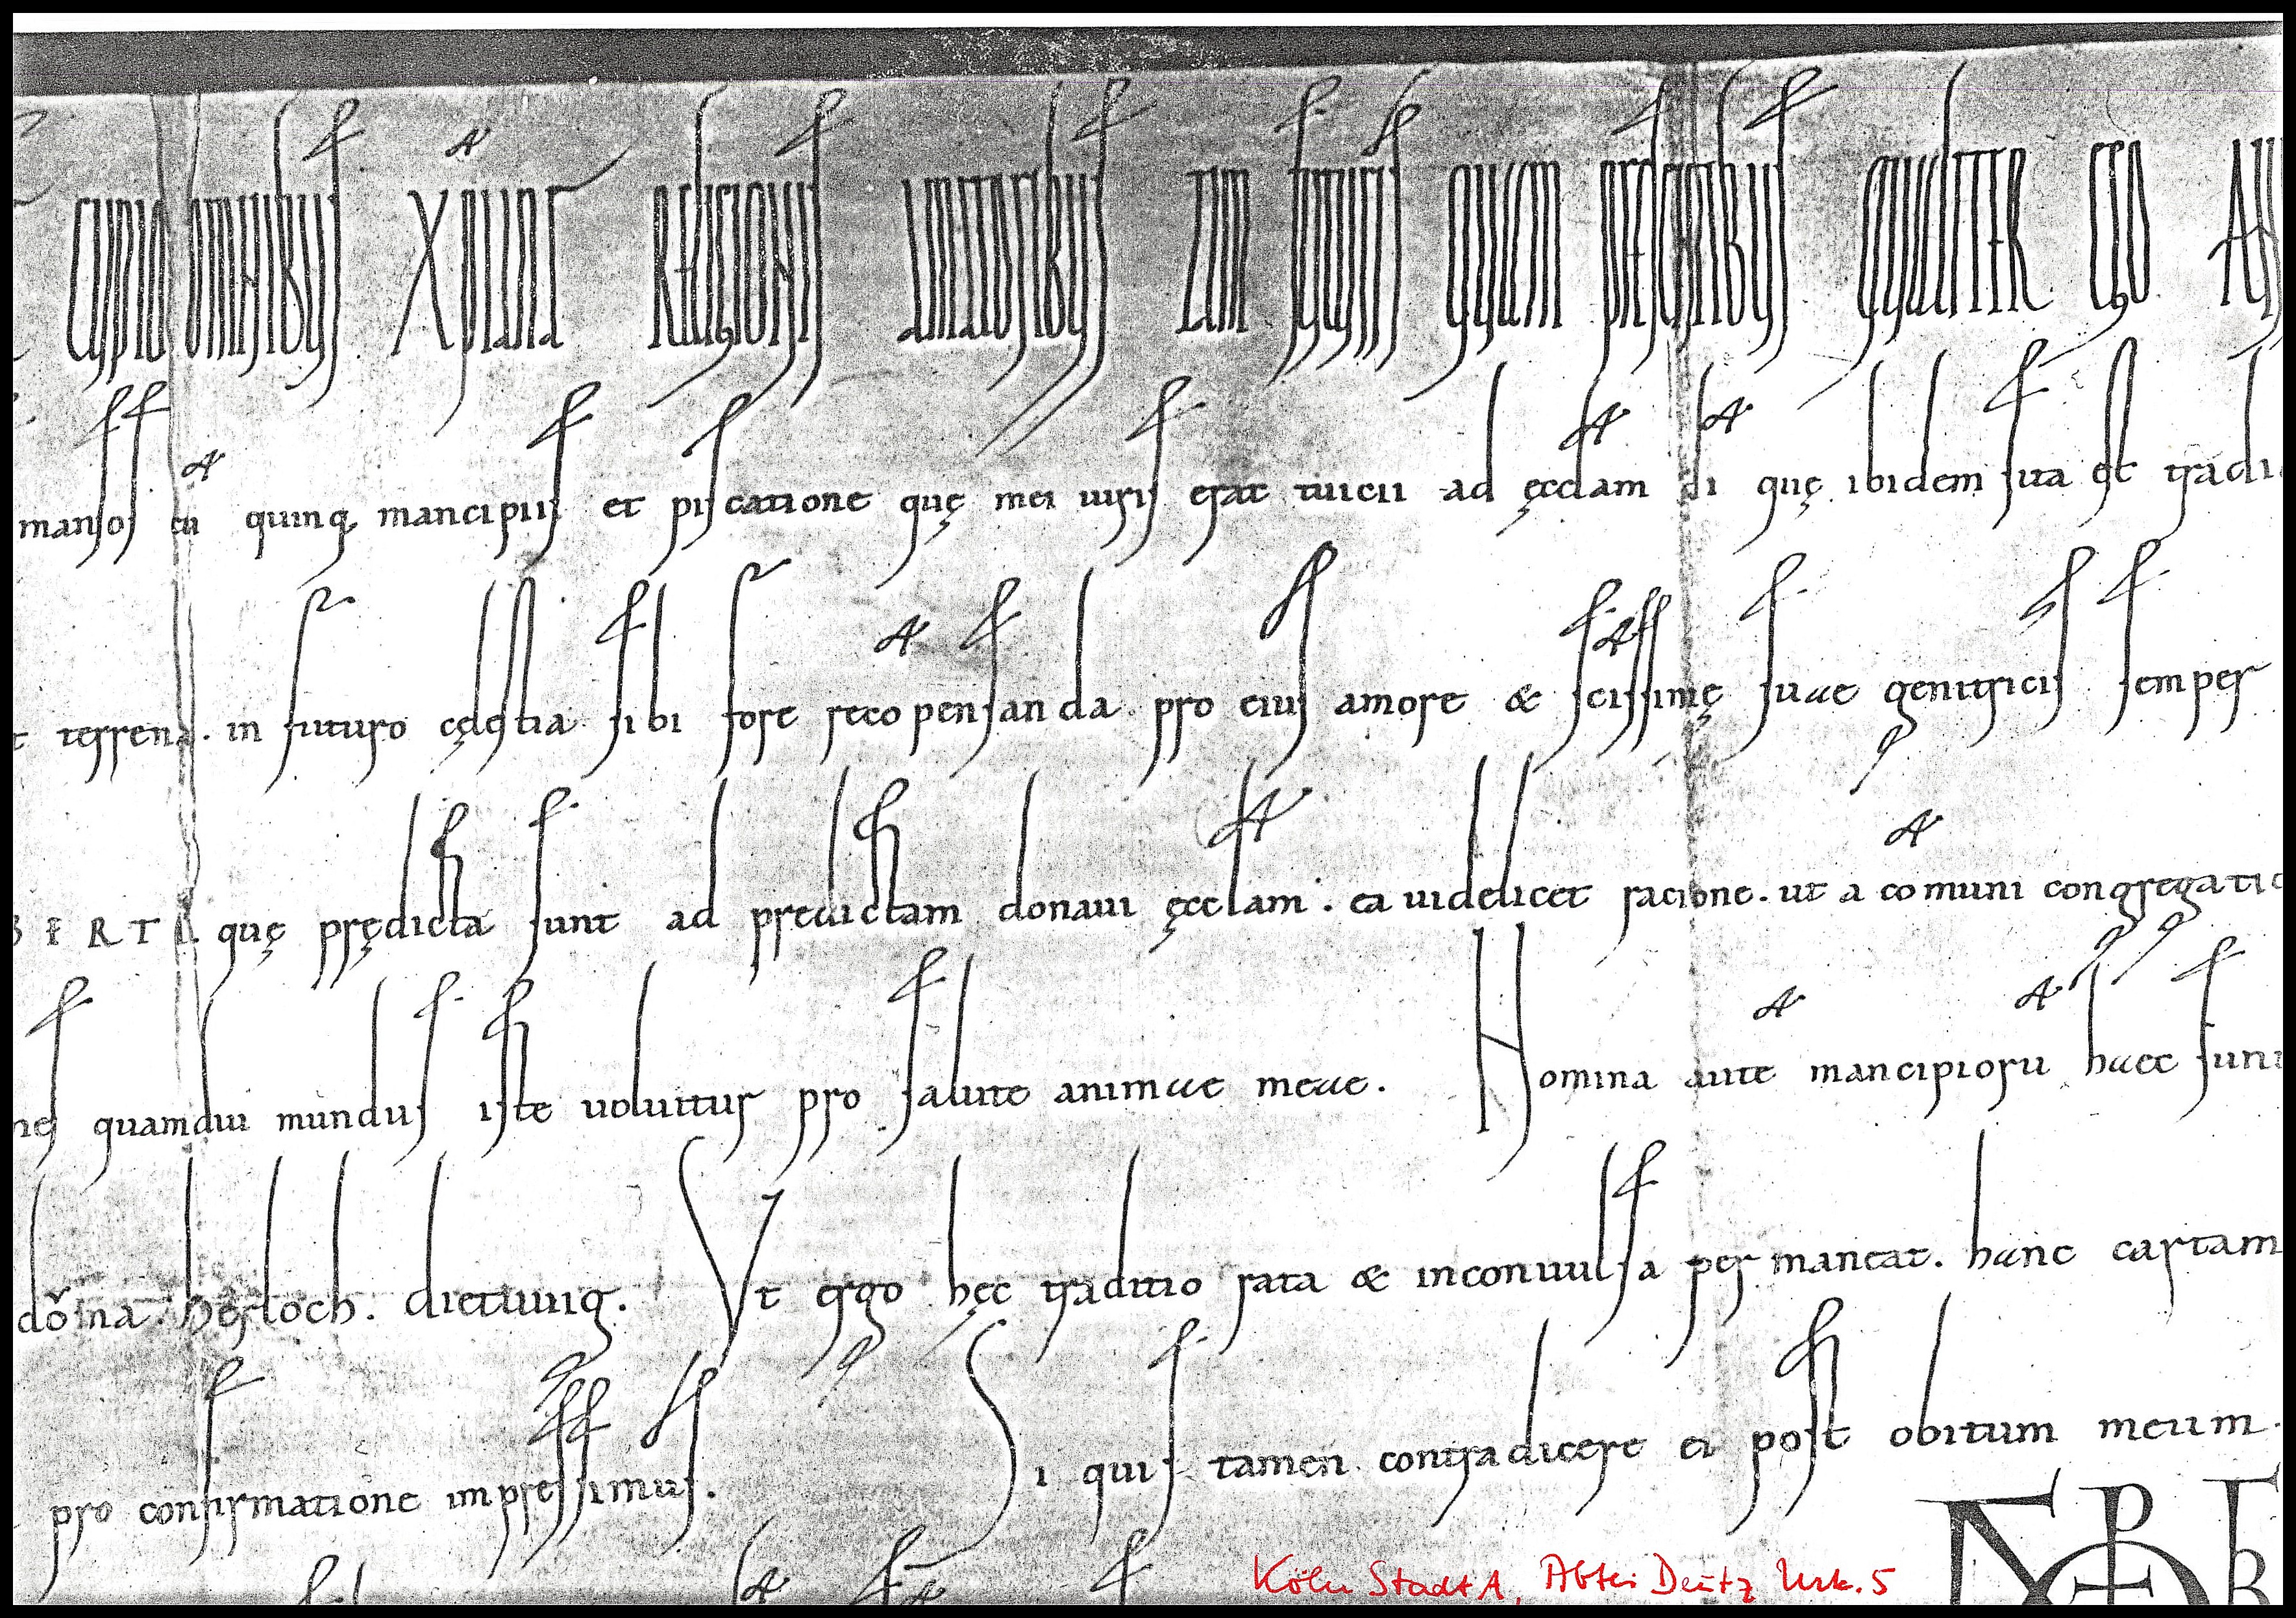 CUPIO OMNIBUS XPIANE RELIGIONIS AMATORIBUS TAM FUTURIS QUAM PRESENTIBUS QUALITER EGO
mansos cu quinq mancipiis et piscatione quę mei iuris erat tuicii ad ęcclam di quę ibidem sita est
terrena. in futuro cęlestia sibi fore recopensanda. pro eius amore & scissimę suae genitricis semper
BERTI. quę prędicta sunt ad predictam donaui ęcclam. ea uidelicet racione. ut a comuni
quamdiu mundus iste uoluitur pro salute animae meae. Nomina aute mancipioru haec
herloch. dietuuig. Vt ergo hęc traditio rata & inconuulsa permaneat. hanc cartam
pro confirmatione impressimus. Si quis tamen contradicere ei post obitum meum.
Köln StadtA, Abtei Deutz Urk. 5